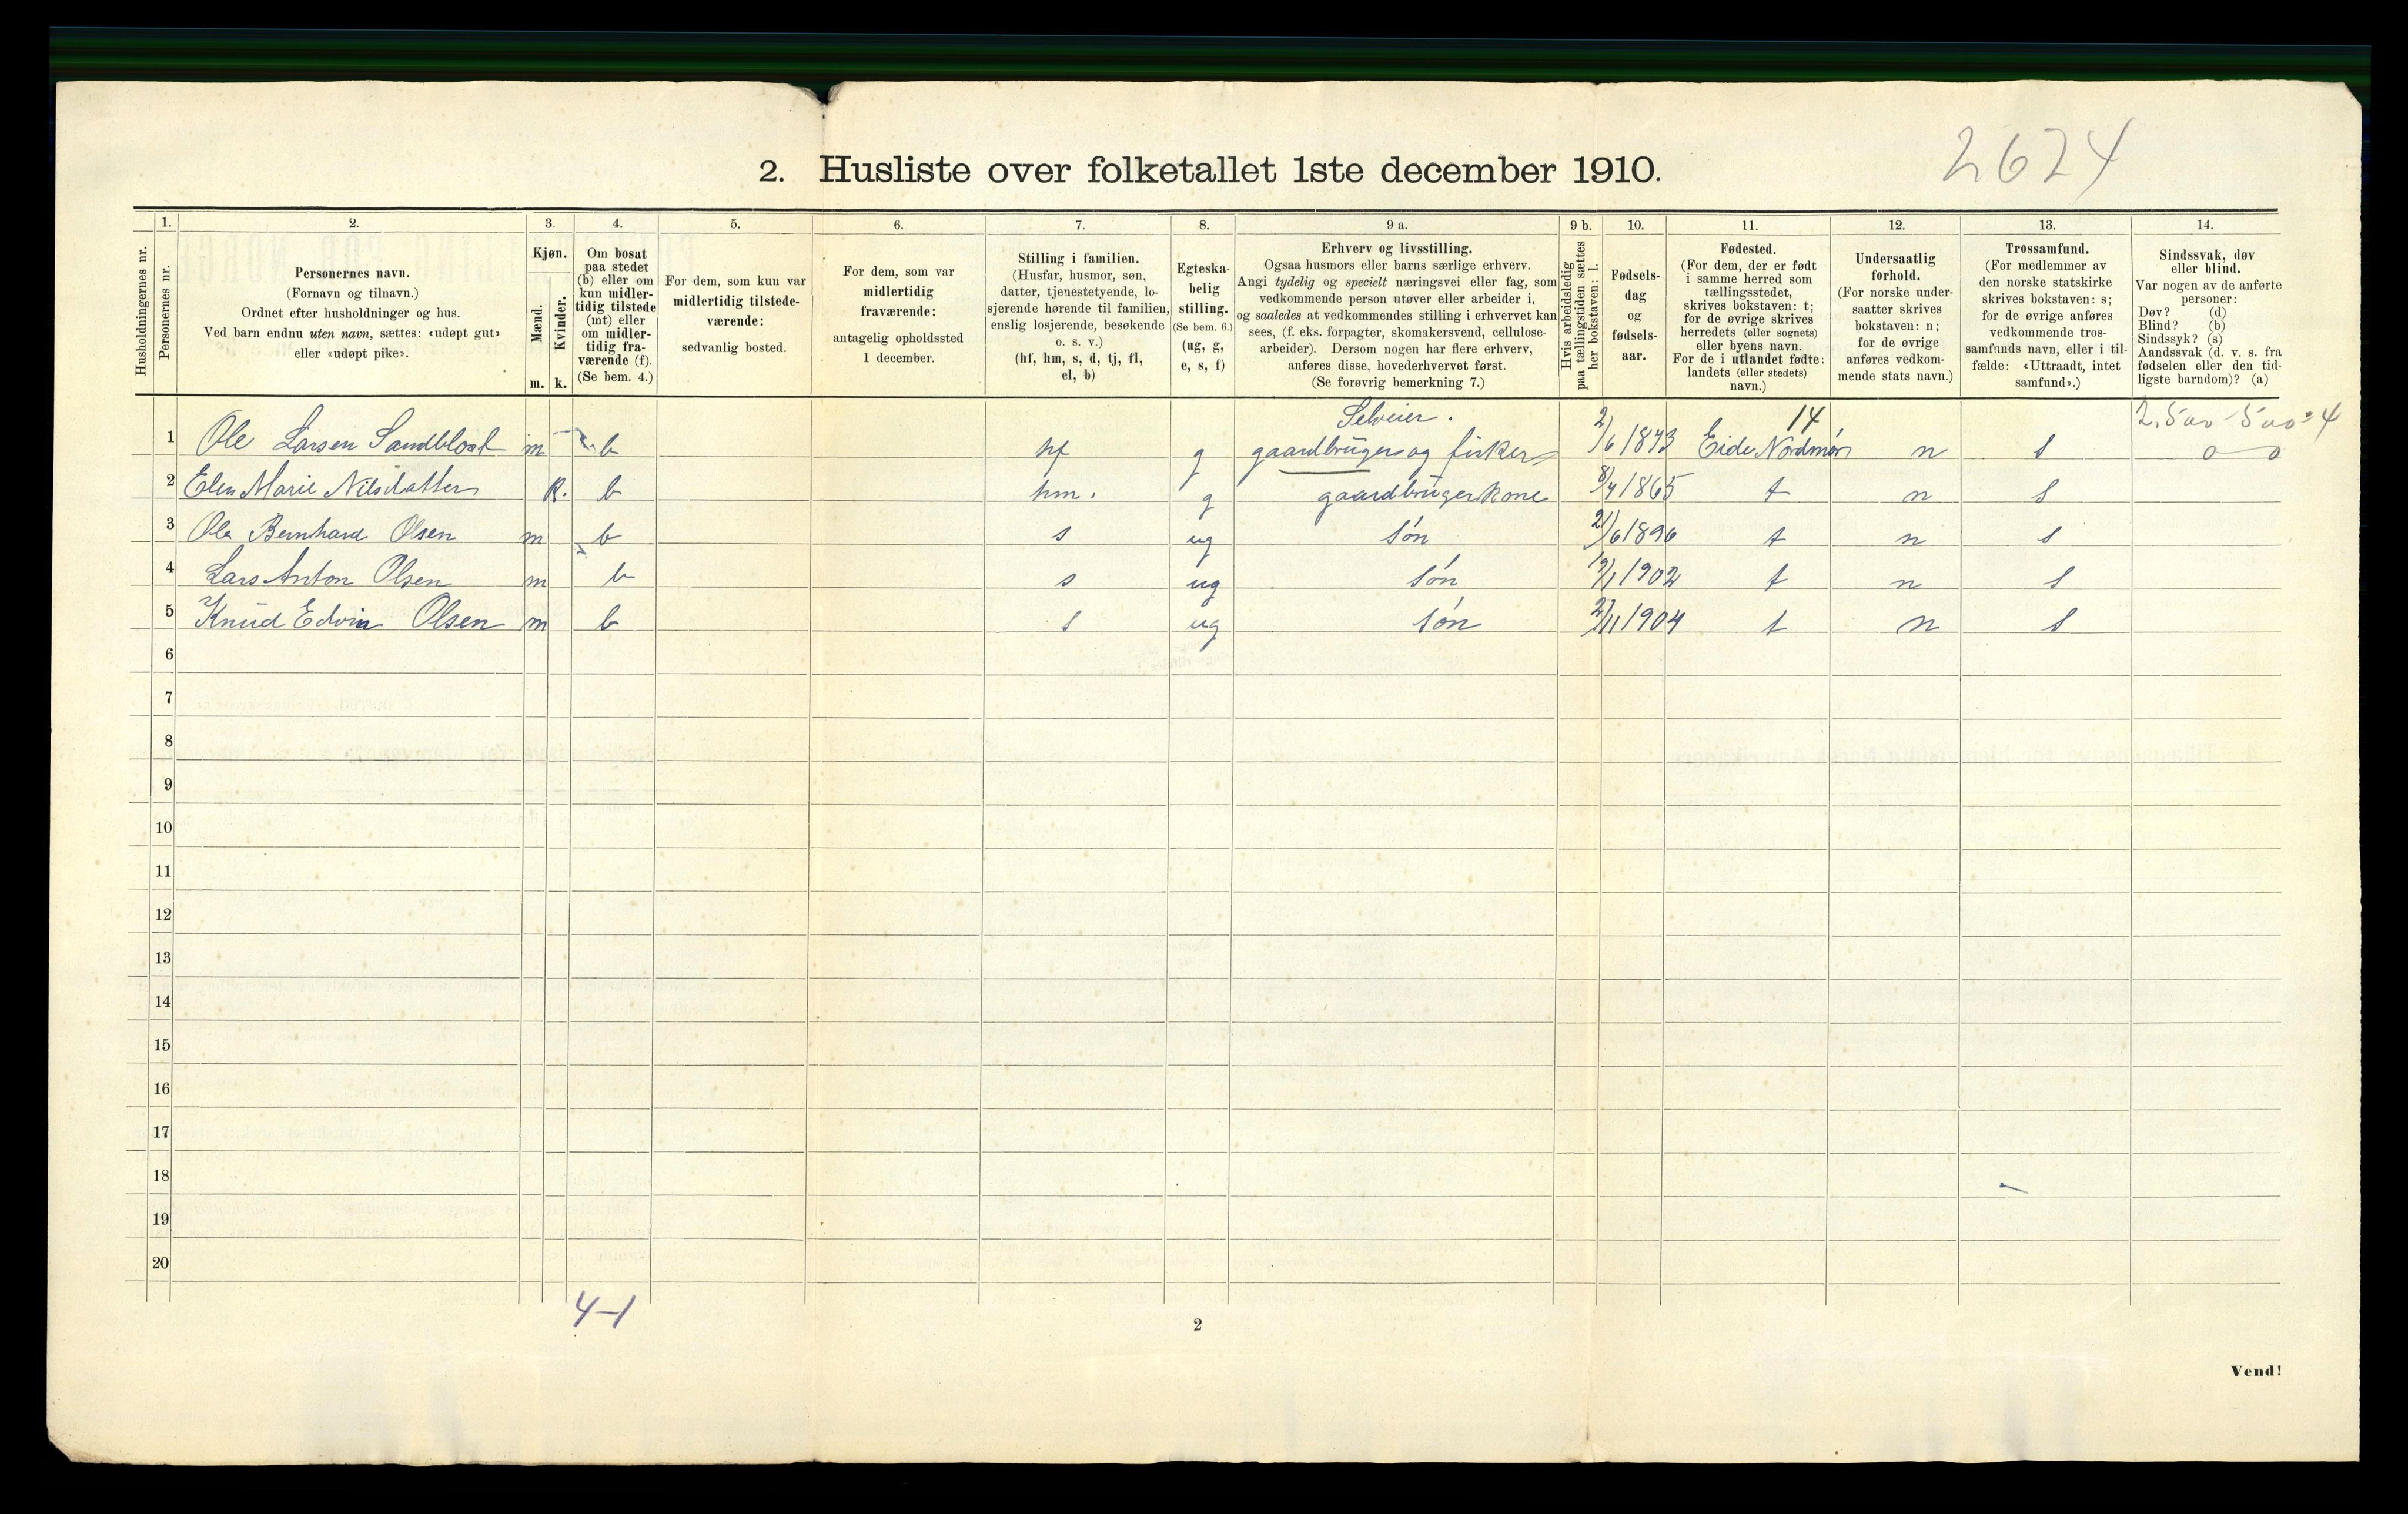 2624
2. Husliste over folketallet 1ste december 1910.
Husholdningernes nr.
1. Personernes nr.
2. Personernes navn. (Fornavn og tilnavn.) Ordnet efter husholdninger og hus. Ved barn endnu uten navn, sættes: «udøpt gut» eller «udøpt pike».
3. Kjøn. Mænd. m. Kvinder. k.
4. Om bosat paa stedet (b) eller om kun midlertidig tilstede (mt) eller om midlertidig fraværende (f). (Se bem. 4.)
5. For dem, som kun var midlertidig tilstedeværende: sedvanlig bosted.
6. For dem, som var midlertidig fraværende: antagelig opholdssted 1 december.
7. Stilling i familien. (Husfar, husmor, søn, datter, tjenestetyende, losjerende hørende til familien, enslig losjerende, besøkende o. s. v.) (hf, hm, s, d, tj, fl, el, b)
8. Egteskabelig stilling. (Se bem. 6.) (ug, g, e, s, f)
9 a. Erhverv og livsstilling. Ogsaa husmors eller barns særlige erhverv. Angi tydelig og specielt næringsvei eller fag, som vedkommende person utøver eller arbeider i, og saaledes at vedkommendes stilling i erhvervet kan sees, (f. eks. forpagter, skomakersvend, cellulosearbeider). Dersom nogen har flere erhverv, anføres disse, hovederhvervet først. (Se forøvrig bemerkning 7.)
9 b. Hvis arbeidsledig paa tællingstiden sættes her bokstaven: l.
10. Fødselsdag og fødselsaar.
11. Fødested. (For dem, der er født i samme herred som tællingsstedet, skrives bokstaven: t; for de øvrige skrives herredets (eller sognets) eller byens navn. For de i utlandet fødte: landets (eller stedets) navn.)
12. Undersaatlig forhold. (For norske undersaatter skrives bokstaven: n; for de øvrige anføres vedkommende stats navn.)
13. Trossamfund. (For medlemmer av den norske statskirke skrives bokstaven: s; for de øvrige anføres vedkommende trossamfunds navn, eller i tilfælde: «Uttraadt, intet samfund».)
14. Sindssvak, døv eller blind. Var nogen av de anførte personer: Døv? (d) Blind? (b) Sindssyk? (s) Aandssvak (d. v. s. fra fødselen eller den tidligste barndom)? (a)
Selveier. 14 2.500-500-4
1 Ole Larsen Sandblost m b hf g gaardbruger og fisker 2/6 1873 Eide Nordmør n s o o
2 Elen Marie Nilsdatter k. b hm. g gaardbrugerkone 8/4 1865 t n s
3 Ole Bernhard Olsen m b s ug søn 21/6 1896 t n s
4 Lars Anton Olsen m b s ug søn 19/1 1902 t n s
5 Knud Edvin Olsen m b s ug søn 27/11 1904 t n s
6
7
8
9
10
11
12
13
14
15
16
17
18
19
20
4-1
2
Vend!